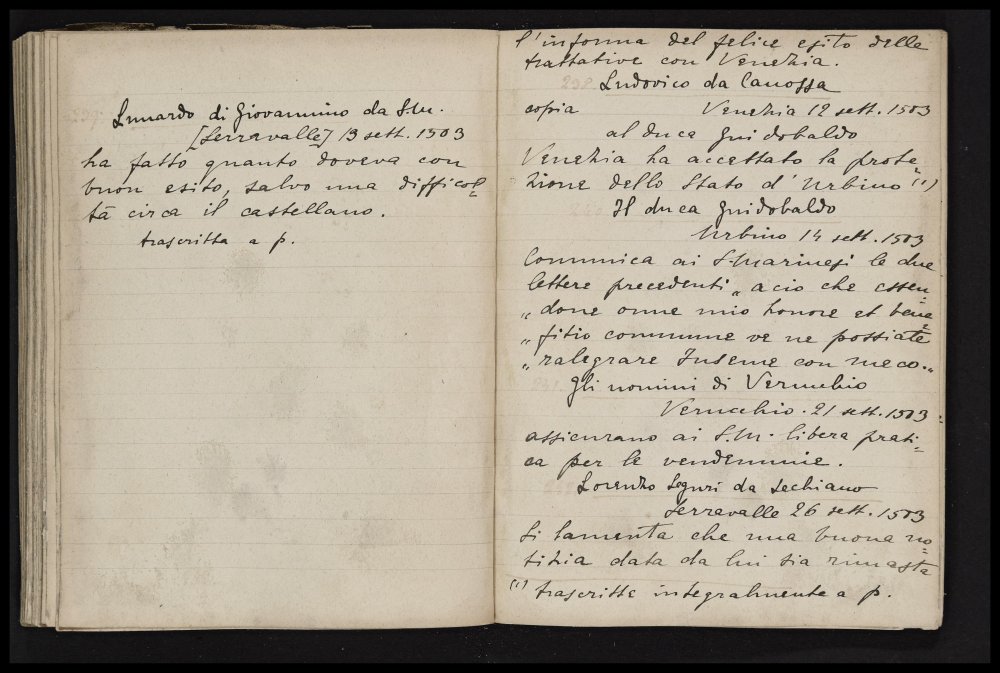 Lunardo di Giovannino da S.M.
[Serravalle] 13 sett. 1503
ha fatto quanto doveva con
buon esito, salvo una difficol=
tà circa il castellano.
trascritta a p.
l'informa del felice esito delle
trattative con Venezia.
Ludovico da Canossa
copia Venezia 12 sett. 1503
al duca Guidobaldo
Venezia ha accettato la prote=
zione dello Stato d'Urbino (1)
Il duca Guidobaldo
Urbino 14 sett. 1503
Comunica ai S. Marinesi le due
lettere precedenti „ acio che essen=
„ done onne mio honore et bene=
„ fitio commune ve ne possiate
„ ralegrare Inseme con meco. „
Gli uomini di Verucchio
Verucchio. 21 sett. 1503
assicurano ai S.M. libera prati=
ca per le vendemmie.
Lorenzo Seguri da Sechiano
Serravalle 26 sett. 1503
Si lamenta che una buona no=
tizia data da lui sia rimasta
(1) trascritte integralmente a p.